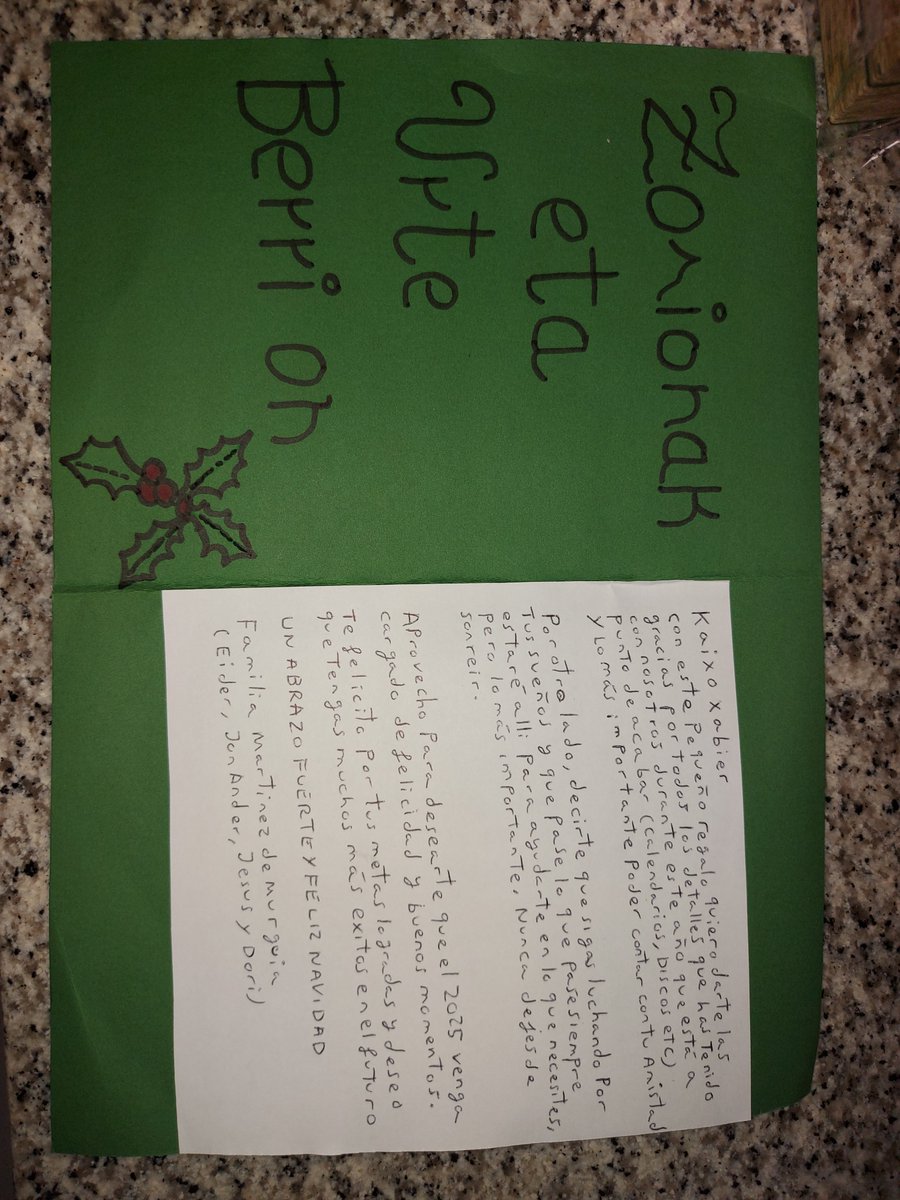 Zorionak
eta
Urte
Berri on
Kaixo xabier
con este pequeño regalo quiero darte las
gracias por todos los detalles que has tenido
con nosotros durante este año que está a
punto de acabar (calendarios, discos etc)
y lo más importante poder contar con tu Amistad
por otro lado, decirte que sigas luchando por
Tus sueños y que pase lo que pase siempre
estaré alli para ayudarte en lo que necesites,
pero lo más importante, Nunca dejes de
sonreir.
Aprovecho para desearte que el 2025 venga
cargado de felicidad y buenos momentos.
Te felicito por tus metas logradas y deseo
que Tengas muchos más exitos en el futuro
UN ABRAZO FUERTE Y FELIZ NAVIDAD
Familia martinez de murguia
(Eider, Jon Ander, Jesus y Dori)